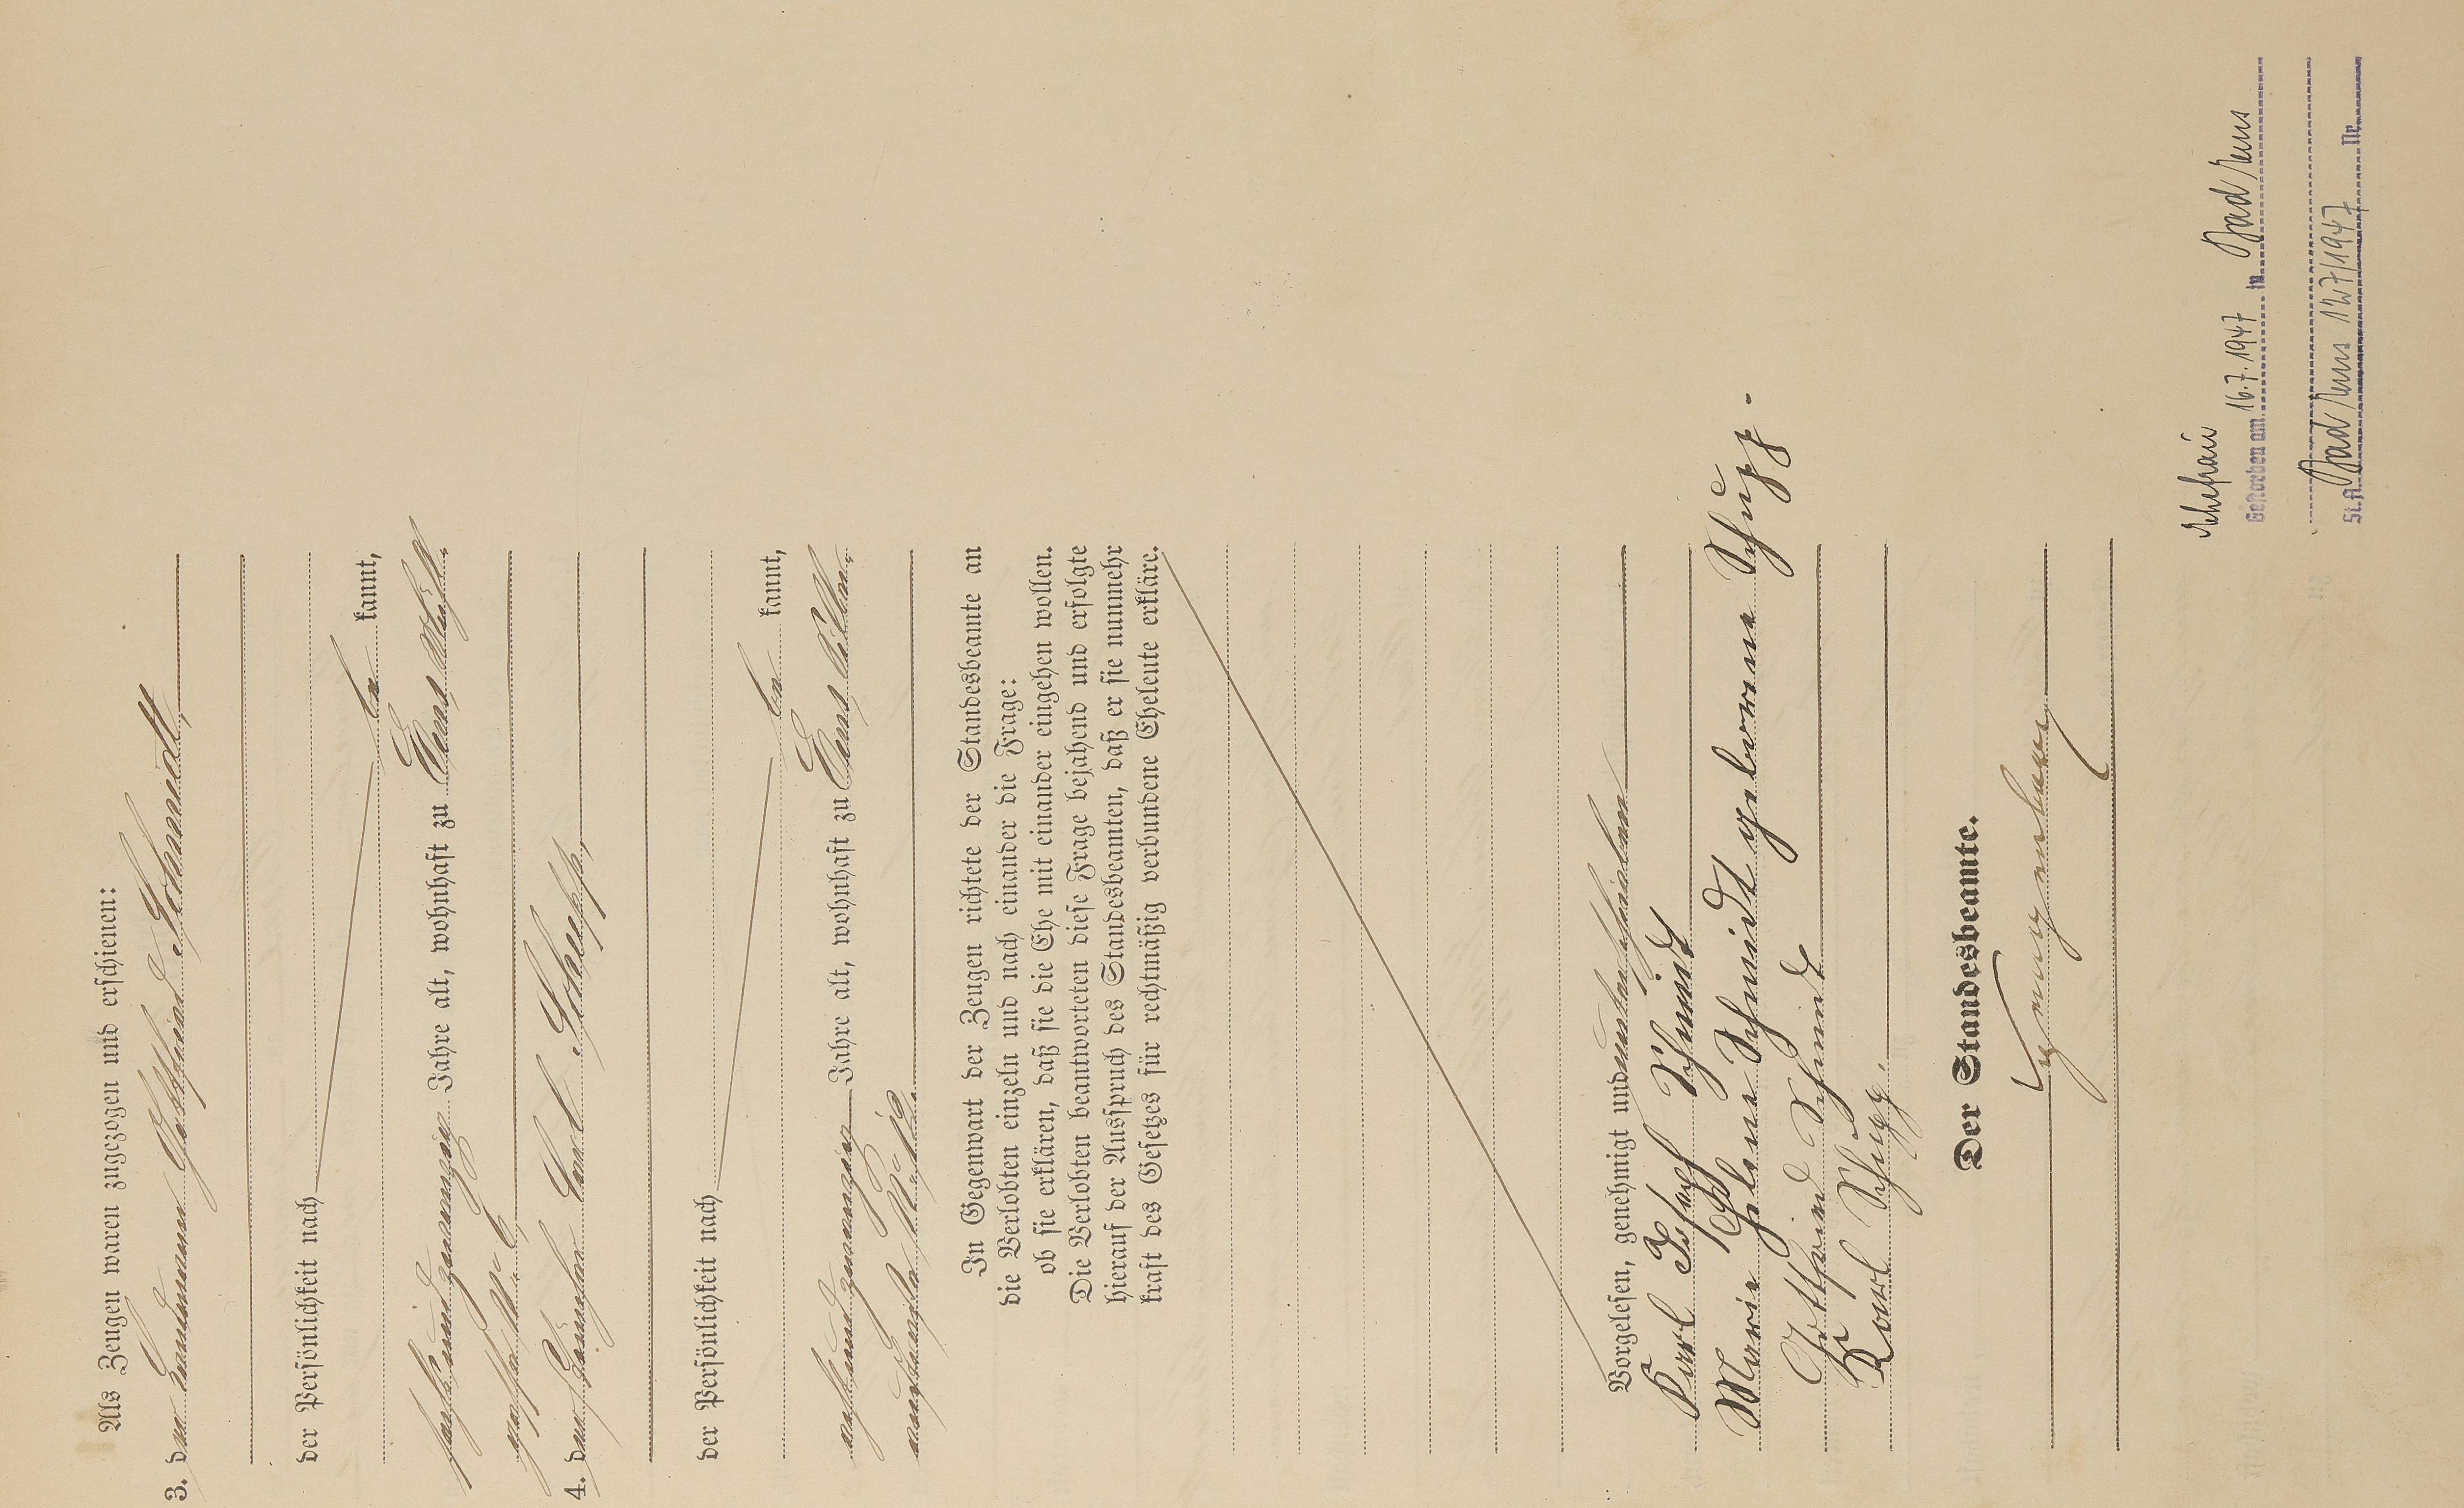 Als Zeugen waren zugezogen und erschienen:
3. der Landmann Gottfried Schmidt,
der Persönlichkeit nach
be kannt,
fünfundzwanzig Jahre alt, wohnhaft zu Ems,
4. der Carl Schupp,
der Persönlichkeit nach
be kannt,
undzwanzig Jahre alt, wohnhaft zu Ems,
In Gegenwart der Zeugen richtete der Standesbeamte an
die Verlobten einzeln und nach einander die Frage:
ob sie erklären, daß sie die Ehe mit einander eingehen wollen.
Die Verlobten beantworteten diese Frage bejahend und erfolgte
hierauf der Ausspruch des Standesbeamten, daß er sie nunmehr
kraft des Gesetzes für rechtmäßig verbundene Eheleute erkläre.
Vorgelesen, genehmigt und unterschrieben
Karl Josef Schmidt
Marie Helene Schmidt geborene Schupp.
Gottfried Schmidt
Karl Schupp.
Der Standesbeamte.
Ehefrau
Gestorben am 16.7.1947 in Bad Ems
St.A. Bad Ems 127/1947 Nr.